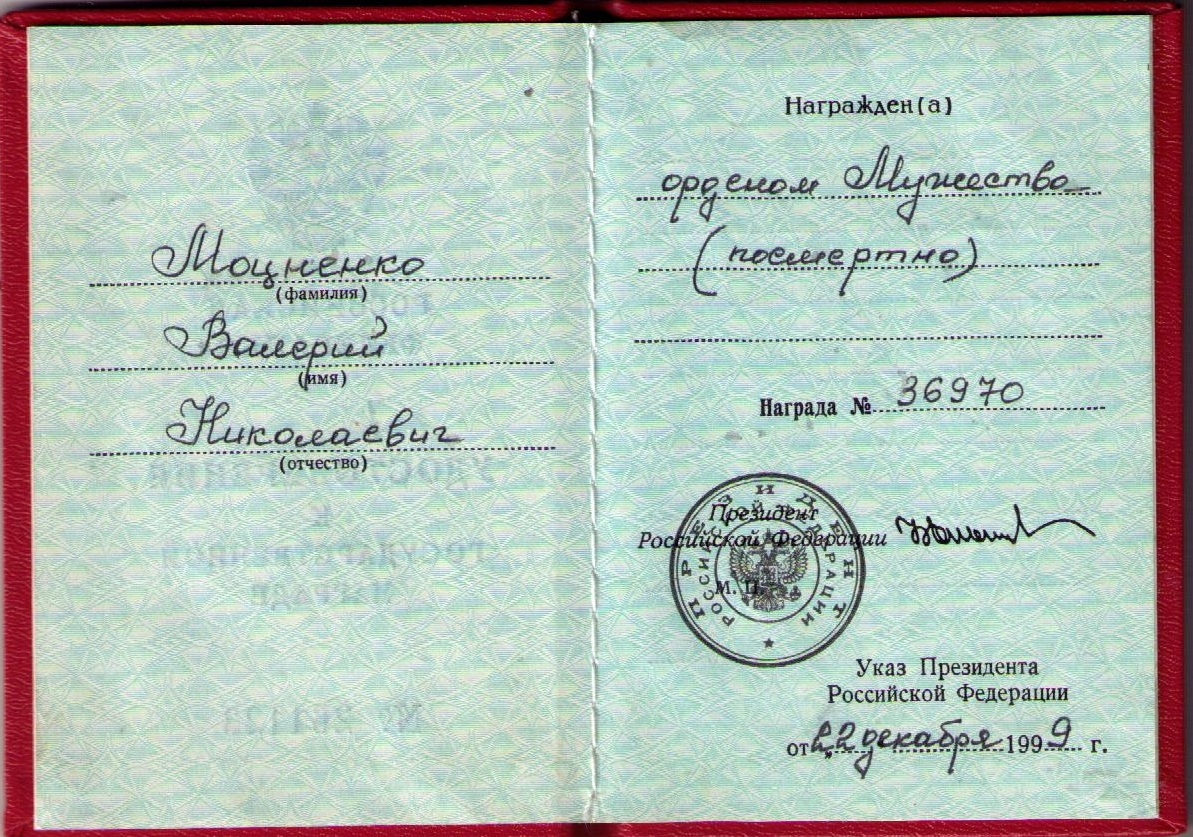 Моцненко
(фамилия)
Валерий
(имя)
Николаевич
(отчество)
Награжден(а)
орденом Мужества
(посмертно)
Награда № 36970
ПРЕЗИДЕНТ
РОССИЙСКОЙ ФЕДЕРАЦИИ
Президент
Российской Федерации
М. П.
Указ Президента
Российской Федерации
от 22 декабря 1999 г.